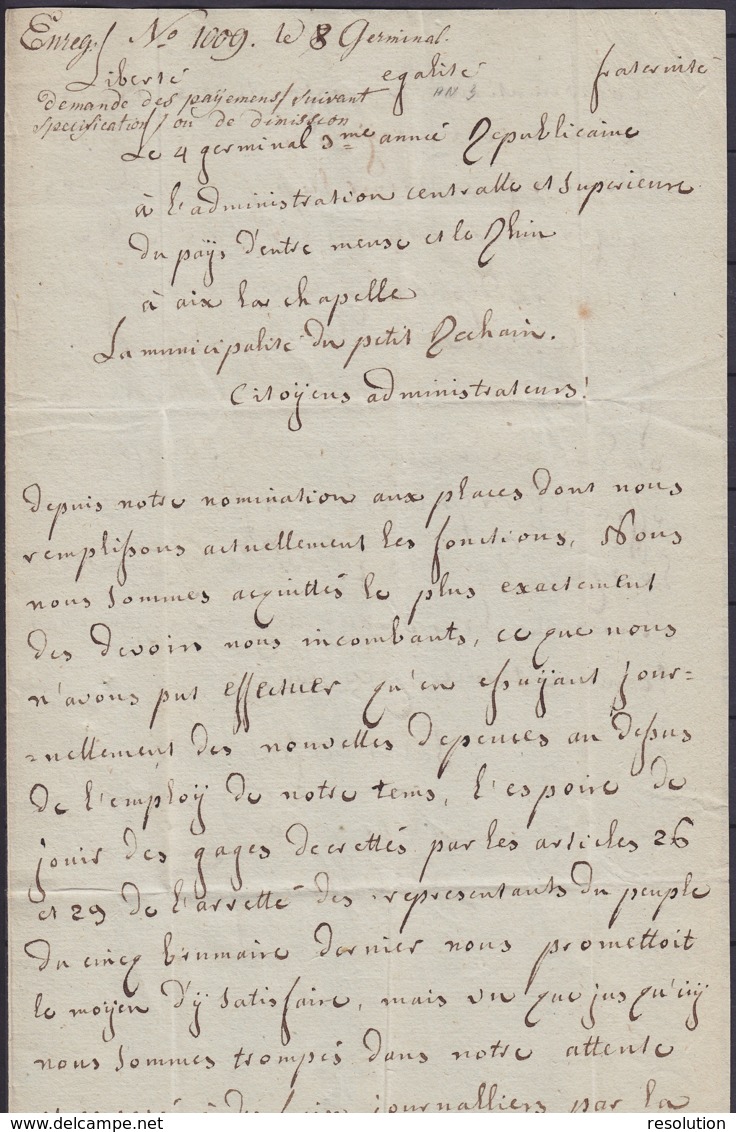 Enreg. No 1009. le 8 Germinal.
Liberté egalité fraternité
demande des payemens suivant
specification ou de dimission
Le 4 germinal 3me année Republicaine
à l'administration centralle et superieure
du paÿs d'entre meuse et le Rhin
à aix la chapelle
La municipalité du petit Rechain.
Citoÿens administrateurs!
depuis notre nomination aux places dont nous
remplissons actuellement les fonctions, Nous
nous sommes acquittés le plus exactement
des devoirs nous incombants, ce que nous
n'avons put effectuer qu'en essuÿant jour=
=nellement des nouvelles depences au dessus
de l'emploÿ de notre tems, l'espoire de
jouir des gages decrettés par les articles 26
et 29 de l'arretté des representants du peuple
du cincq brumaire dernier nous promettoit
le moÿen d'ÿ satisfaire, mais vu que jusqu'icÿ
nous sommes trompés dans notre attente
journalliers par la
resolution